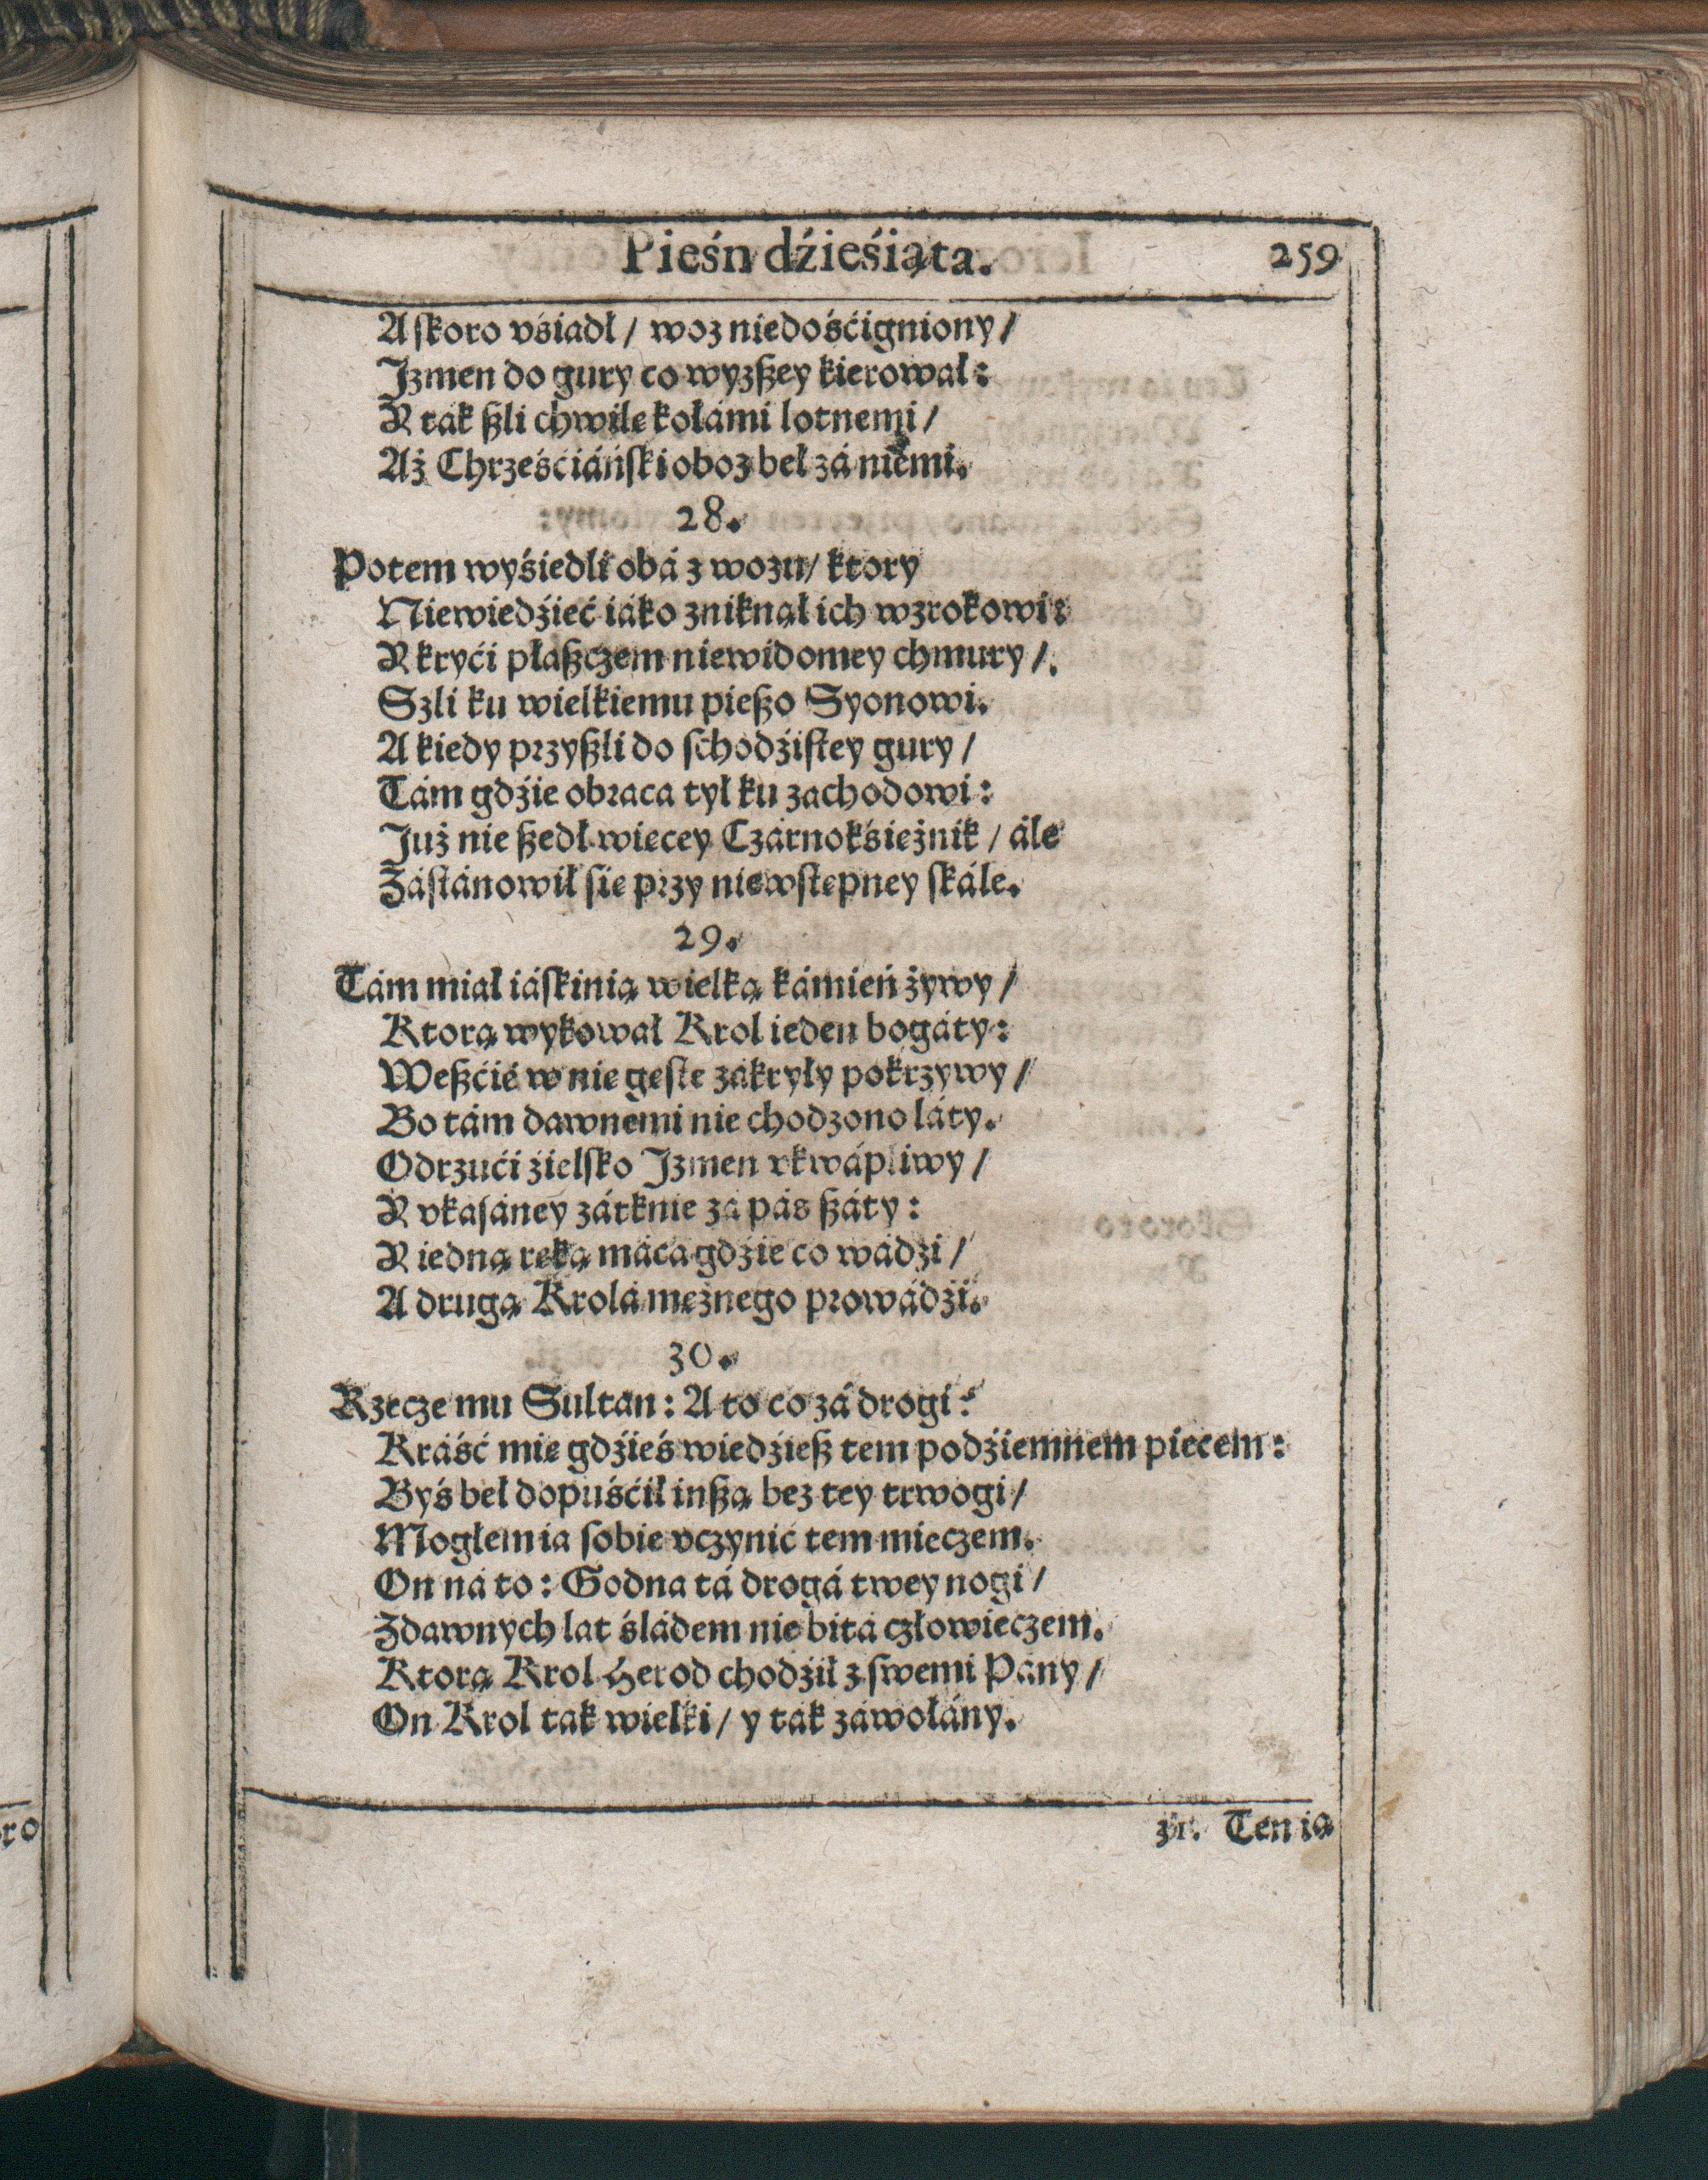 Pieśn dźieśiąta. 259
A ſkoro vśiadł / woz niedośćigniony /
Jzmen do gury co wyzßey kierował:
Y tak ßli chwile kołámi lotnemi /
Aż Chrześćiáńſki oboz beł zá niemi.
28.
Potem wyśiedli obá z wozu / ktory
Niewiedźieć iáko zniknął ich wzrokowi:
Y kryći płaßczem niewidomey chmury /.
Szli ku wielkiemu pießo Syonowi.
A kiedy przyßli do ſchodźiſtey gury /
Tám gdźie obraca tył ku zachodowi:
Już nie ßedł wiecey Czárnokśieżnik / ále
Zaſtánowił ſie przy niewſtepney ſkále.
29.
Tám miał iáſkinią wielką kámień żywy /
Ktorą wykował Krol ieden bogáty:
Weßćié w nie geſte zákryły pokrzywy /
Bo tám dawnemi nie chodzono láty.
Odrzući źielſko Jzmen vkwápliwy /
Y vkaſáney zátknie zá pás ßáty:
Y iedną reką máca gdźie co wádzi /
A drugą Krolá meżnego prowádźi.
30.
Rzecze mu Sultan: A to co zá drogi?
Kráść mie gdźieś wiedźieß tem podźiemnem piecem:
Byś beł dopuśćił inßą bez tey trwogi /
Mogłem ia ſobie vczynić tem mieczem.
On ná to: Godna tá drogá twey nogi /
Zdawnych lat śládem nie bita człowieczem.
Ktorą Krol Herod chodźił z ſwemi Pány /
On Krol tak wielki / y tak záwołány.
31. Ten ią
ro